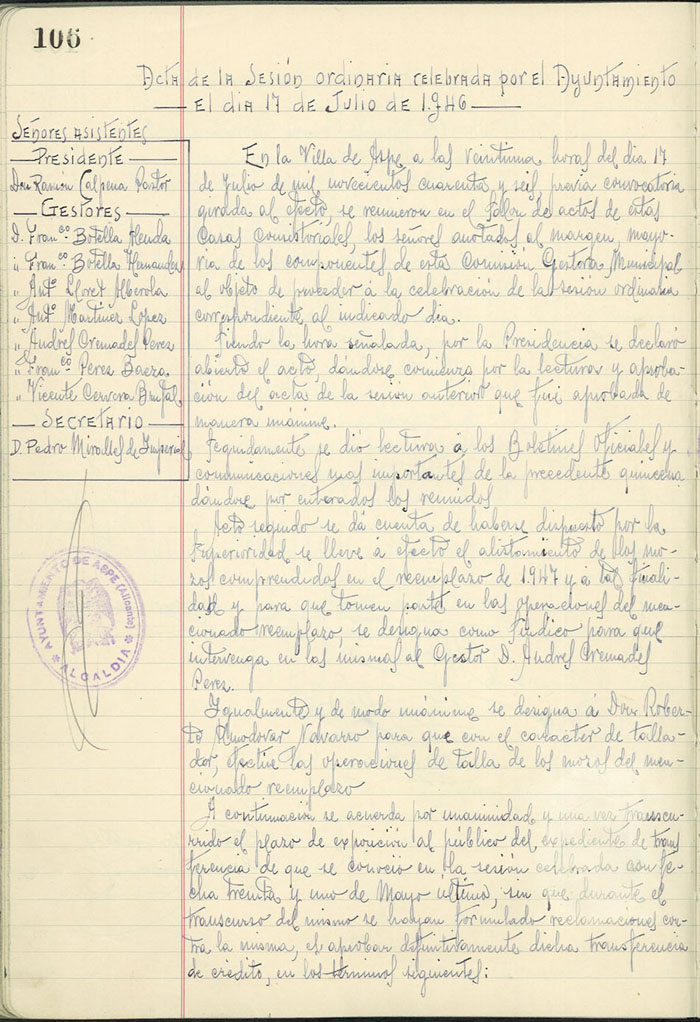 106
Acta de la Sesión ordinaria celebrada por el Ayuntamiento
el dia 17 de Julio de 1.946
Señores asistentes
Presidente
Don Ramón Calpena Pastor
Gestores
D. Franco Botella
" Franco Botella Hernandez
" Anto Lloret Alberola
" Anto Martinez Lopez
" Andres Cremades Perez
" Franco Perez
" Vicente Cervera
Secretario
D. Pedro Miralles de Imperial
AYUNTAMIENTO DE ASPE (Alicante)
ALCALDIA
En la Villa de Aspe a las veintiuna horas del dia 17
de Julio de mil novecientos cuarenta y seis, previa convocatoria
girada al efecto, se reunieron en el Salon de actos de estas
Casas Consistoriales, los señores anotados al margen, mayo-
ria de los componentes de esta Comisión Gestora Municipal
al objeto de proceder á la celebración de la sesion ordinaria
correspondiente al indicado dia.
Siendo la hora señalada, por la Presidencia se declaró
abierto el acto, dándose comienzo por la lectura y aproba-
ción del acta de la sesión anterior que fué aprobada de
manera unánime.
Seguidamente se dió lectura á los Boletines Oficiales y
comunicaciones mas importantes de la precedente quincena
dándose por enterados los reunidos
Acto seguido se dá cuenta de haberse dispuesto por la
Superioridad se lleve á efecto el alistamiento de los mo-
zos comprendidos en el reemplazo de 1.947 y á tal finali-
dad y para que tomen parte en las operaciones del men-
cionado reemplazo, se designa como Síndico para que
intervenga en las mismas al Gestor D. Andres Cremades
Perez.
Igualmente y de modo unánime se designa á Don Rober-
to Almodovar Navarro para que con el carácter de talla-
dor, efectue las operaciones de talla de los mozos del men-
cionado reemplazo
A continuación se acuerda por unanimidad y una vez transcu-
rrido el plazo de exposición al público del expediente de trans
ferencia de que se conoció en la sesión celebrada con fe-
cha treinta y uno de Mayo ultimo, sin que durante el
transcurso del mismo se hayan formulado reclamaciones con-
tra la misma, el aprobar definitivamente dicha transferencia
de crédito, en los terminos siguientes: